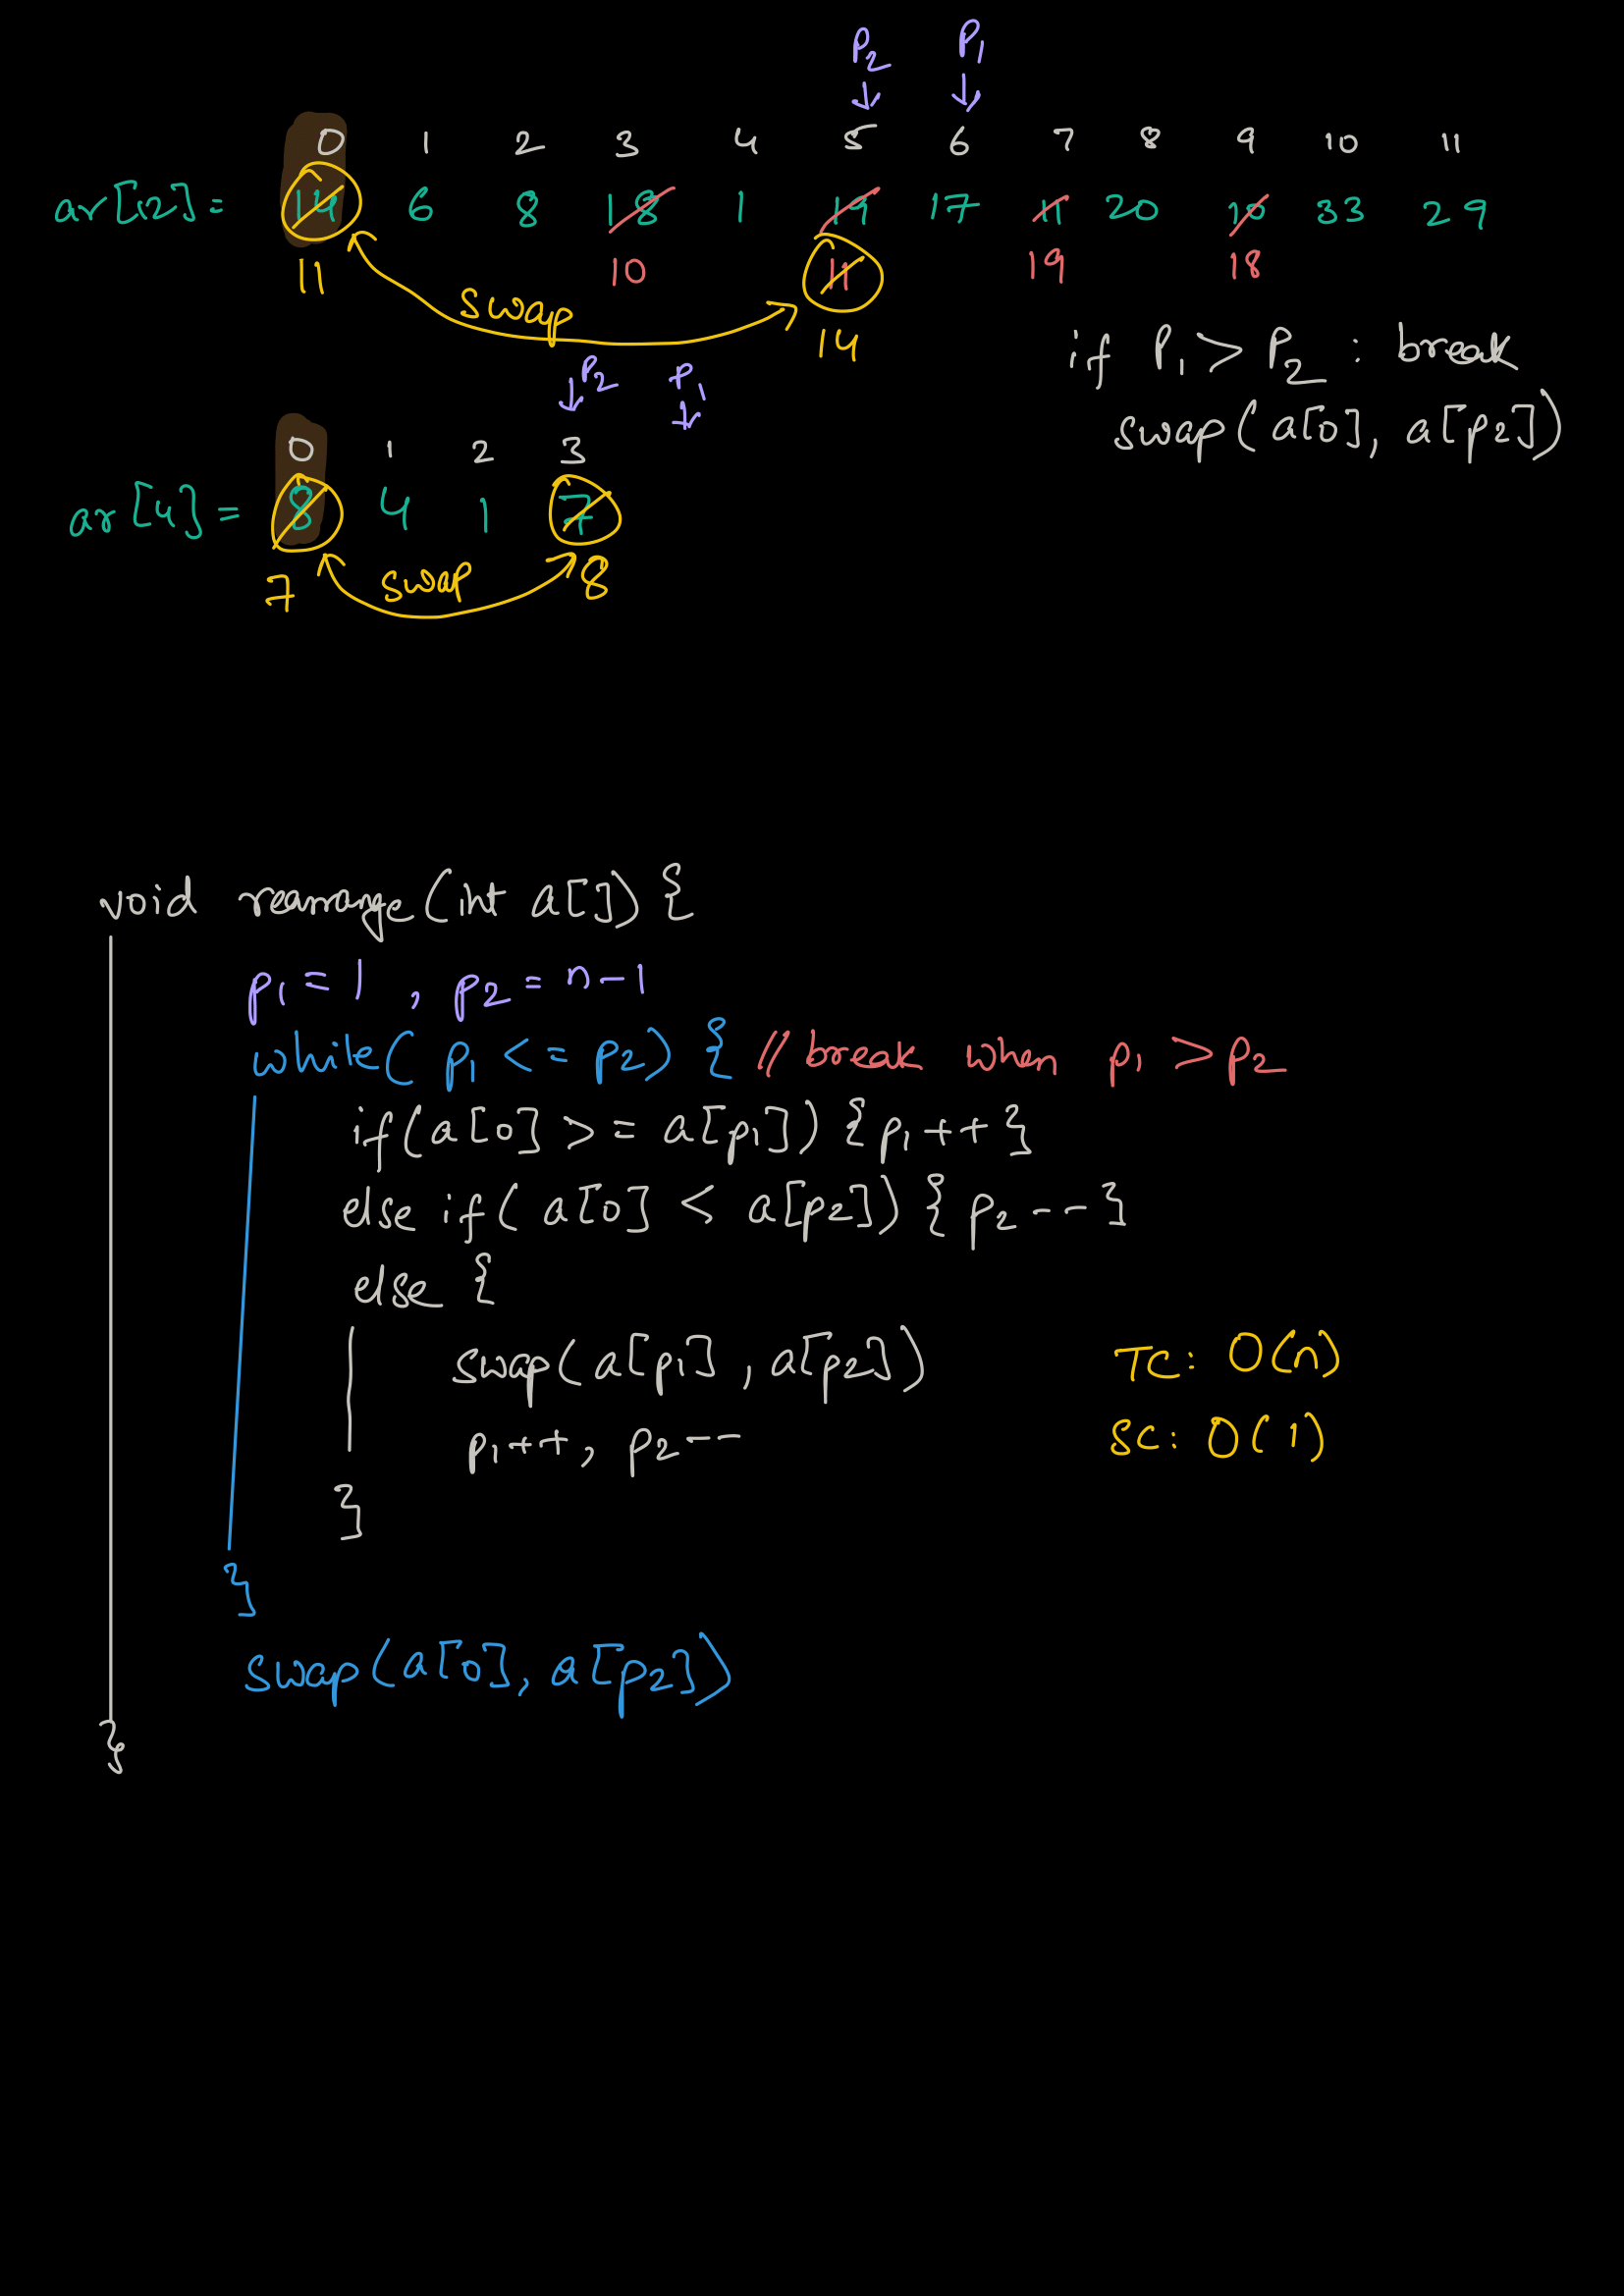 P2 P1
0 1 2 3 4 5 6 7 8 9 10 11
ar[12] = 14 6 8 18 1 19 17 11 20 10 33 29
11 10 11 19 18
swap
14
if P1 > P2 : break
swap(a[0], a[p2])
P2 P1
0 1 2 3
ar[4] = 8 4 1 7
7 swap 8
void rearrange(int a[]) {
p1 = 1 , p2 = n-1
while( p1 <= p2) { // break when p1 > p2
if(a[0] >= a[p1]) {p1++}
else if( a[0] < a[p2]) {p2--}
else {
swap(a[p1] , a[p2])
TC: O(n)
p1++, p2--
SC: O(1)
}
}
swap(a[0], a[p2])
}